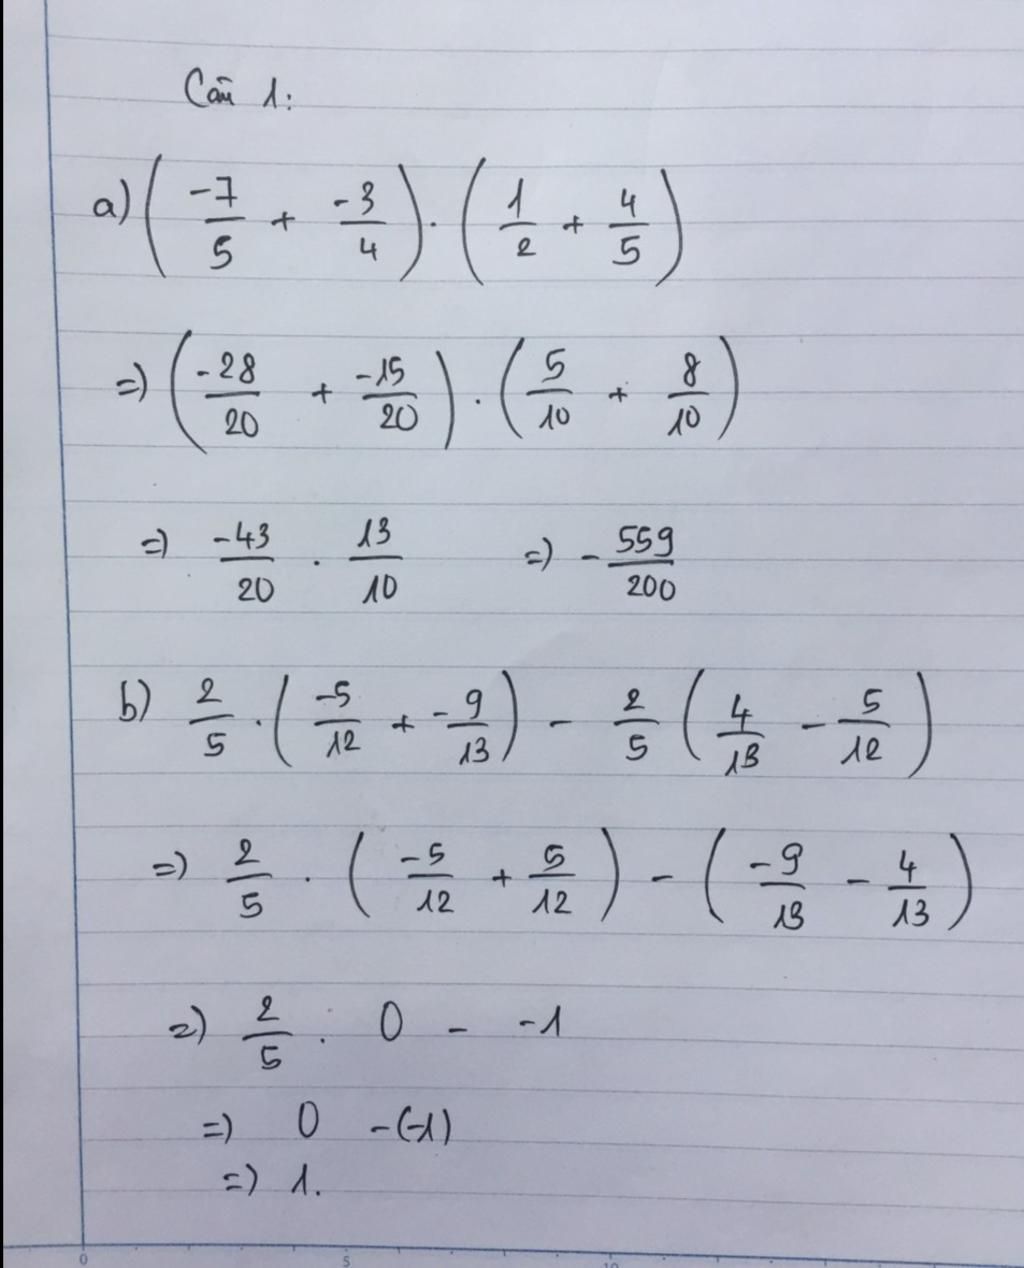 Câu 1:
a) ( -7/5 + -3/4 ) . ( 1/2 + 4/5 )
=) ( -28/20 + -15/20 ) . ( 5/10 + 8/10 )
=) -43/20 . 13/10 =) - 559/200
b) 2/5 . ( -5/12 + -9/13 ) - 2/5 ( 4/13 - 5/12 )
=) 2/5 . ( -5/12 + 5/12 ) - ( -9/13 - 4/13 )
=) 2/5 . 0 - -1
=) 0 -(-1)
=) 1.
0 5 10